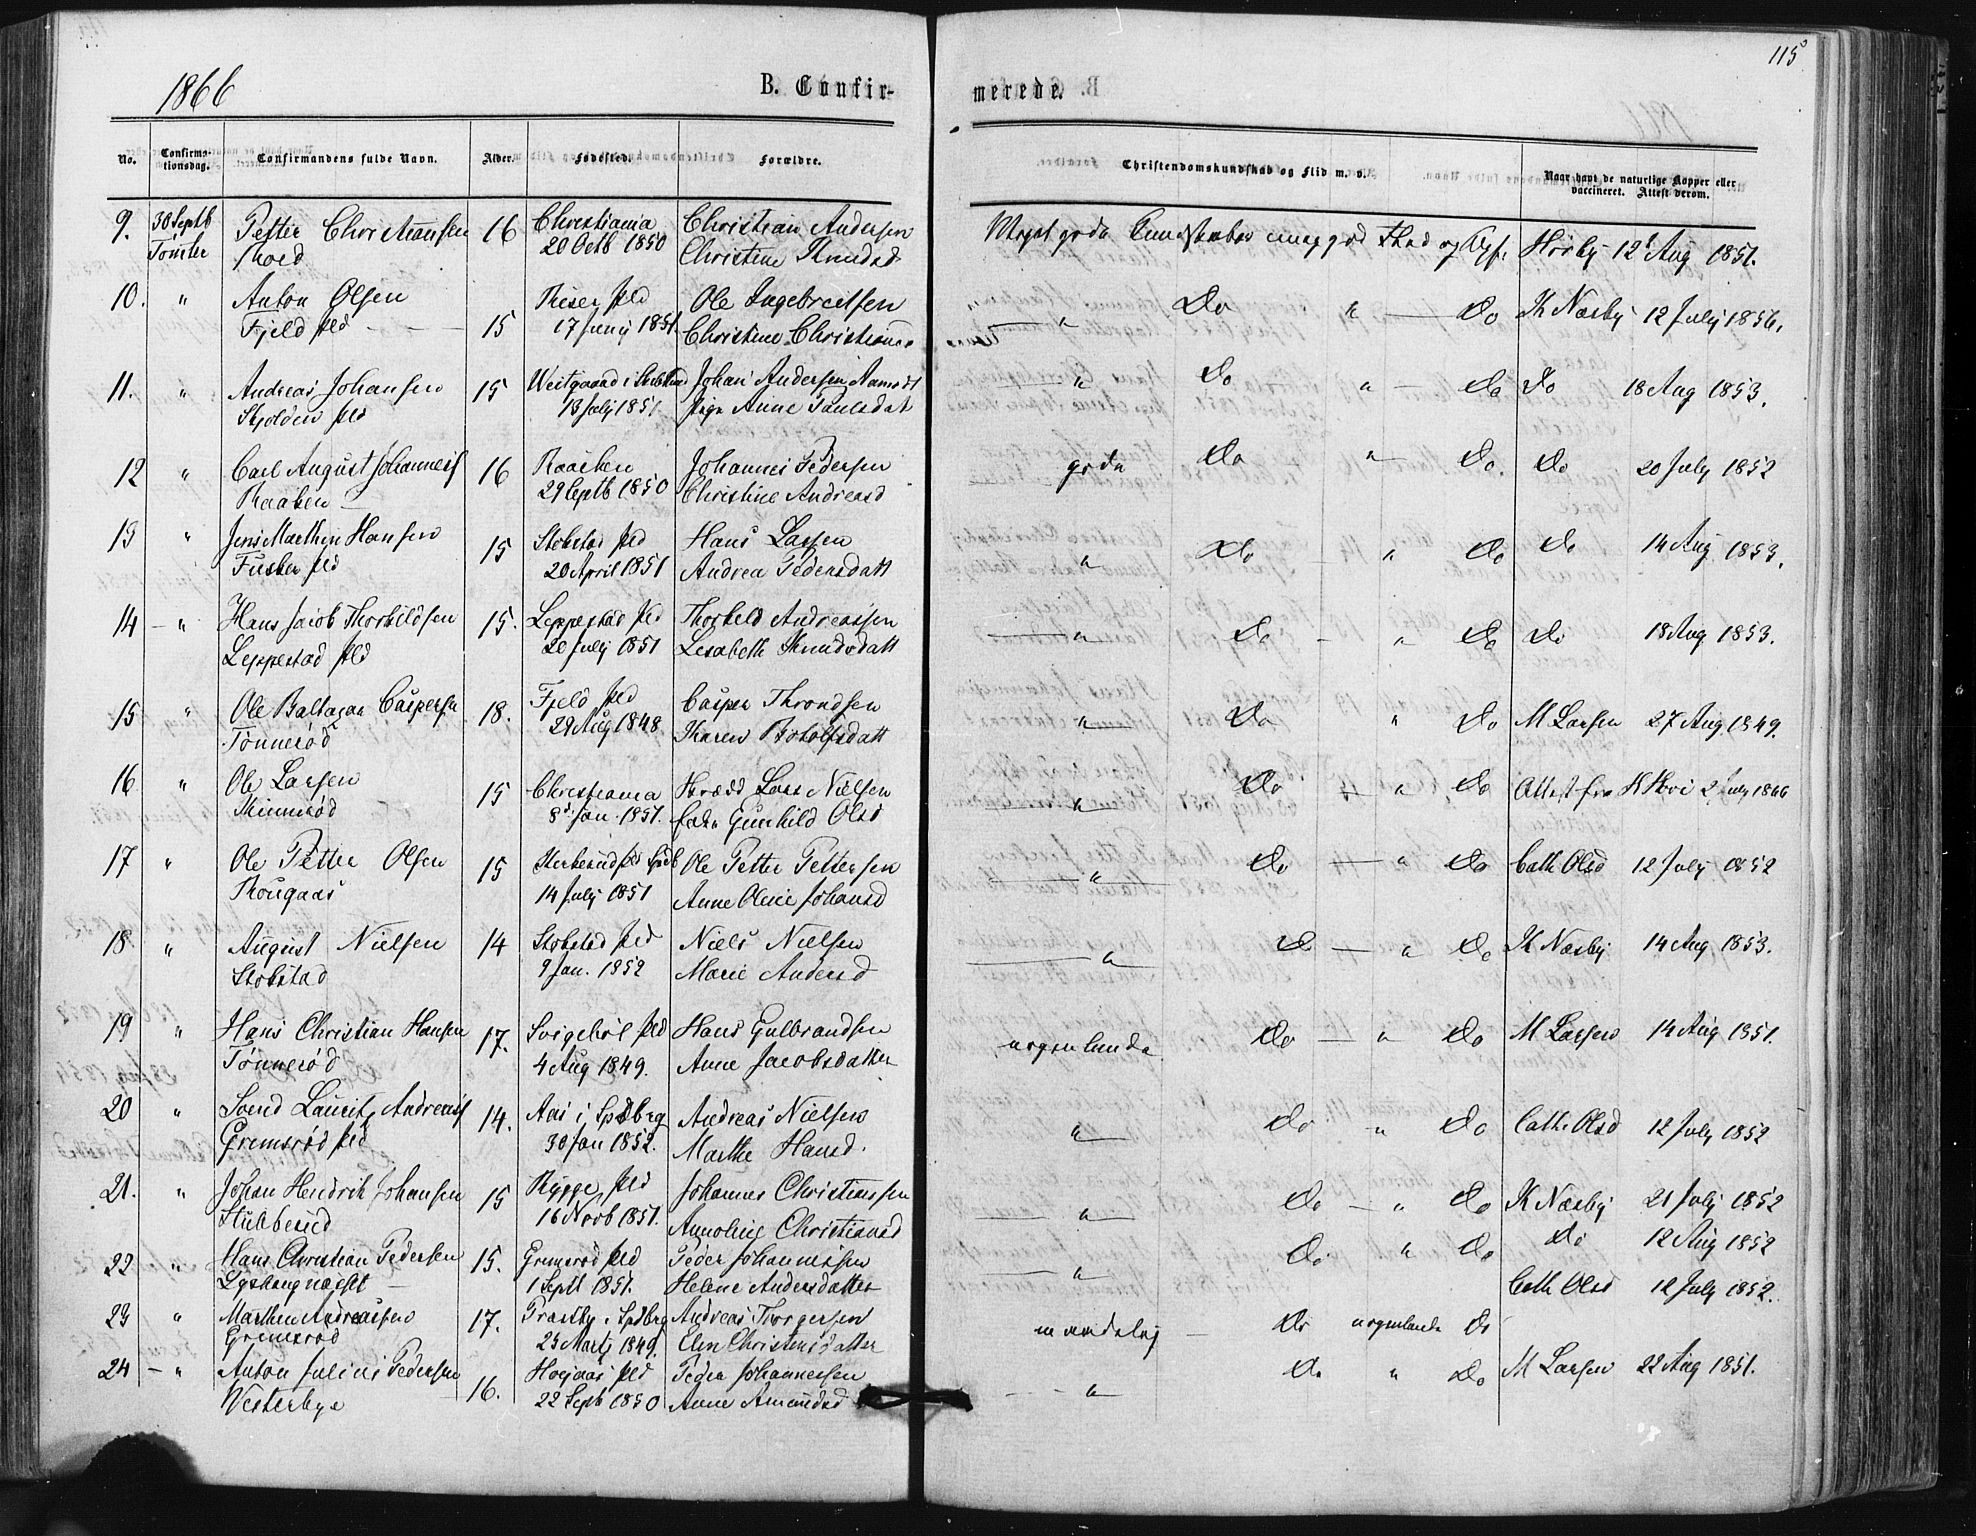 115
1866
B. Confir- merede.
No. Confirmationsdag. Confirmandens fulde Navn. Alder. Fødested. Forældre. Christendomskundskab og Flid m. v. Naar havt de naturlige Kopper eller vaccineret. Attest derom.
9. 30 Septb Petter Christiansen 16 Christiania Christian Andersen Meget gode Kundskaber meget god Flid og Opf. Hörby 12 Aug 1851.
Tomter Moed 20 Octb 1850 Christine Knudsd
10. " Anton Olsen Riser pld Ole Ingebretsen " Do " Do K Næsby 12 July 1856.
Fjeld pld 15 17 Juny 1851. Christine Christians
11. " Andreas Johansen 15 Westgaard i Johan Andersen " Do " Do Do 18 Aug 1853.
Skjolden pld 13 July 1851 Pige Anne Paulsdat
12 " Carl August Johannes 16 Raaken Johannes Pedersen gode Do " Do. Do 20 July 1852
Raaken 29 Septb 1850 Christine Andreasd
13 " Jens Marthin Hansen 15 Stokstad pld Hans Larsen " Do " Do Do 14 Aug 1853.
Fusker pld 20 April 1851 Andrea Pedersdatt
14 " Hans Jacob Thorkildsen 15. Leppestad pld Thorkeld Andreassen " Do " Do Do 18 Aug 1853.
Leppestad pld 20 July 1851 Lisabeth Knudsdatt
15 " Ole Baltazar Caspersen 18. Fjeld pld Casper Throndsen " Do " Do M Larsen 27 Aug 1849.
Tonnerød 29 Aug 1848. Karen Botolfsdatt
16 " Ole Larsen 15 Christiania Lars Nielsen " Do " Do Attest fra 2 July 1866
8 Jan. 1851. Gunhild Olsd
17 " Ole Petter Olsen 15 Ole Petter Pettersen " Do " Do Cath Olsd 12 July 1852
Rougaas 14 July 1851 Anne Oline Johansd
18 " August Nielsen 14 Stokstad pld Niels Nielsen " Do " Do K Næsby 14 Aug 1853.
Stokstad 9 Jan. 1852 Marie Andersd
19 " Hans Christian Hansen 17. Svigebøl pld Hans Gulbrandsen nogenlunde Do " Do M Larsen 14 Aug 1851.
Tønnerød 4 Aug 1849. Anne Jacobsdatter
20 " Svend Lauritz Andreas 14. Aas i Spdberg Andreas Nielsen " Do " Do Cath. Olsd 12 July 1852
Gremsrød pld 30 Jan 1852. Marthe Hansd.
21. " Johan Hendrik Johansen 15 Rygge pld Johannes Christiansen " Do " Do K Næsby 21 July 1852
Stubberud 16 Novb 1851. Annoline Christiansd
22 " Hans Christian Pedersen 15. Gremsrød pld Peder Johannessen " Do " Do Do 12 Aug 1852
1 Sept 1851. Helene Andersdatter
23 " Marthin Andreassen 17. i Spdberg Andreas Torgersen maadelig Do nogenlunde Do Cath Olsd 12 July 1852.
Gremsrød 25 Marts 1849. Elen Christensdatter
24 " Anton Julius Pedersen 16. Høyaas pld Peder Johannessen " Do " Do M Larsen 22 Aug 1851.
Westerbye 22 Septb 1850 Anne Amundsd